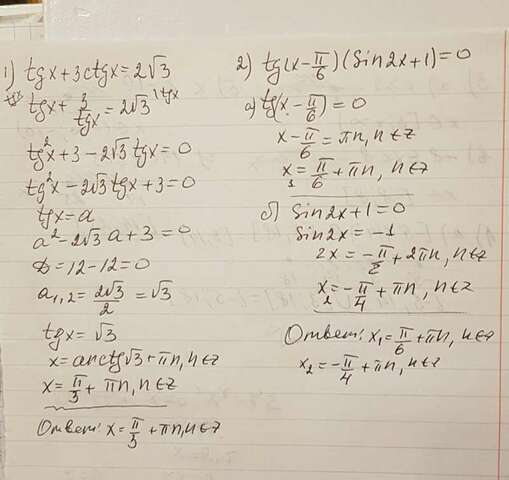 1) tgx + 3ctgx = 2√3
tgx + 3/tgx = 2√3 | tgx
tg²x + 3 - 2√3 tgx = 0
tg²x - 2√3 tgx + 3 = 0
tgx = a
a² - 2√3 a + 3 = 0
D = 12 - 12 = 0
a₁,₂ = 2√3/2 = √3
tgx = √3
x = arctg√3 + πn, n∈z
x = π/3 + πn, n∈z
Ответ: x = π/3 + πn, n∈z
2) tg(x - π/6)(Sin2x + 1) = 0
а) tg(x - π/6) = 0
x - π/6 = πn, n∈z
x₁ = π/6 + πn, n∈z
б) Sin2x + 1 = 0
Sin2x = -1
2x = -π/2 + 2πn, n∈z
x₂ = -π/4 + πn, n∈z
Ответ: x₁ = π/6 + πn, n∈z
x₂ = -π/4 + πn, n∈z